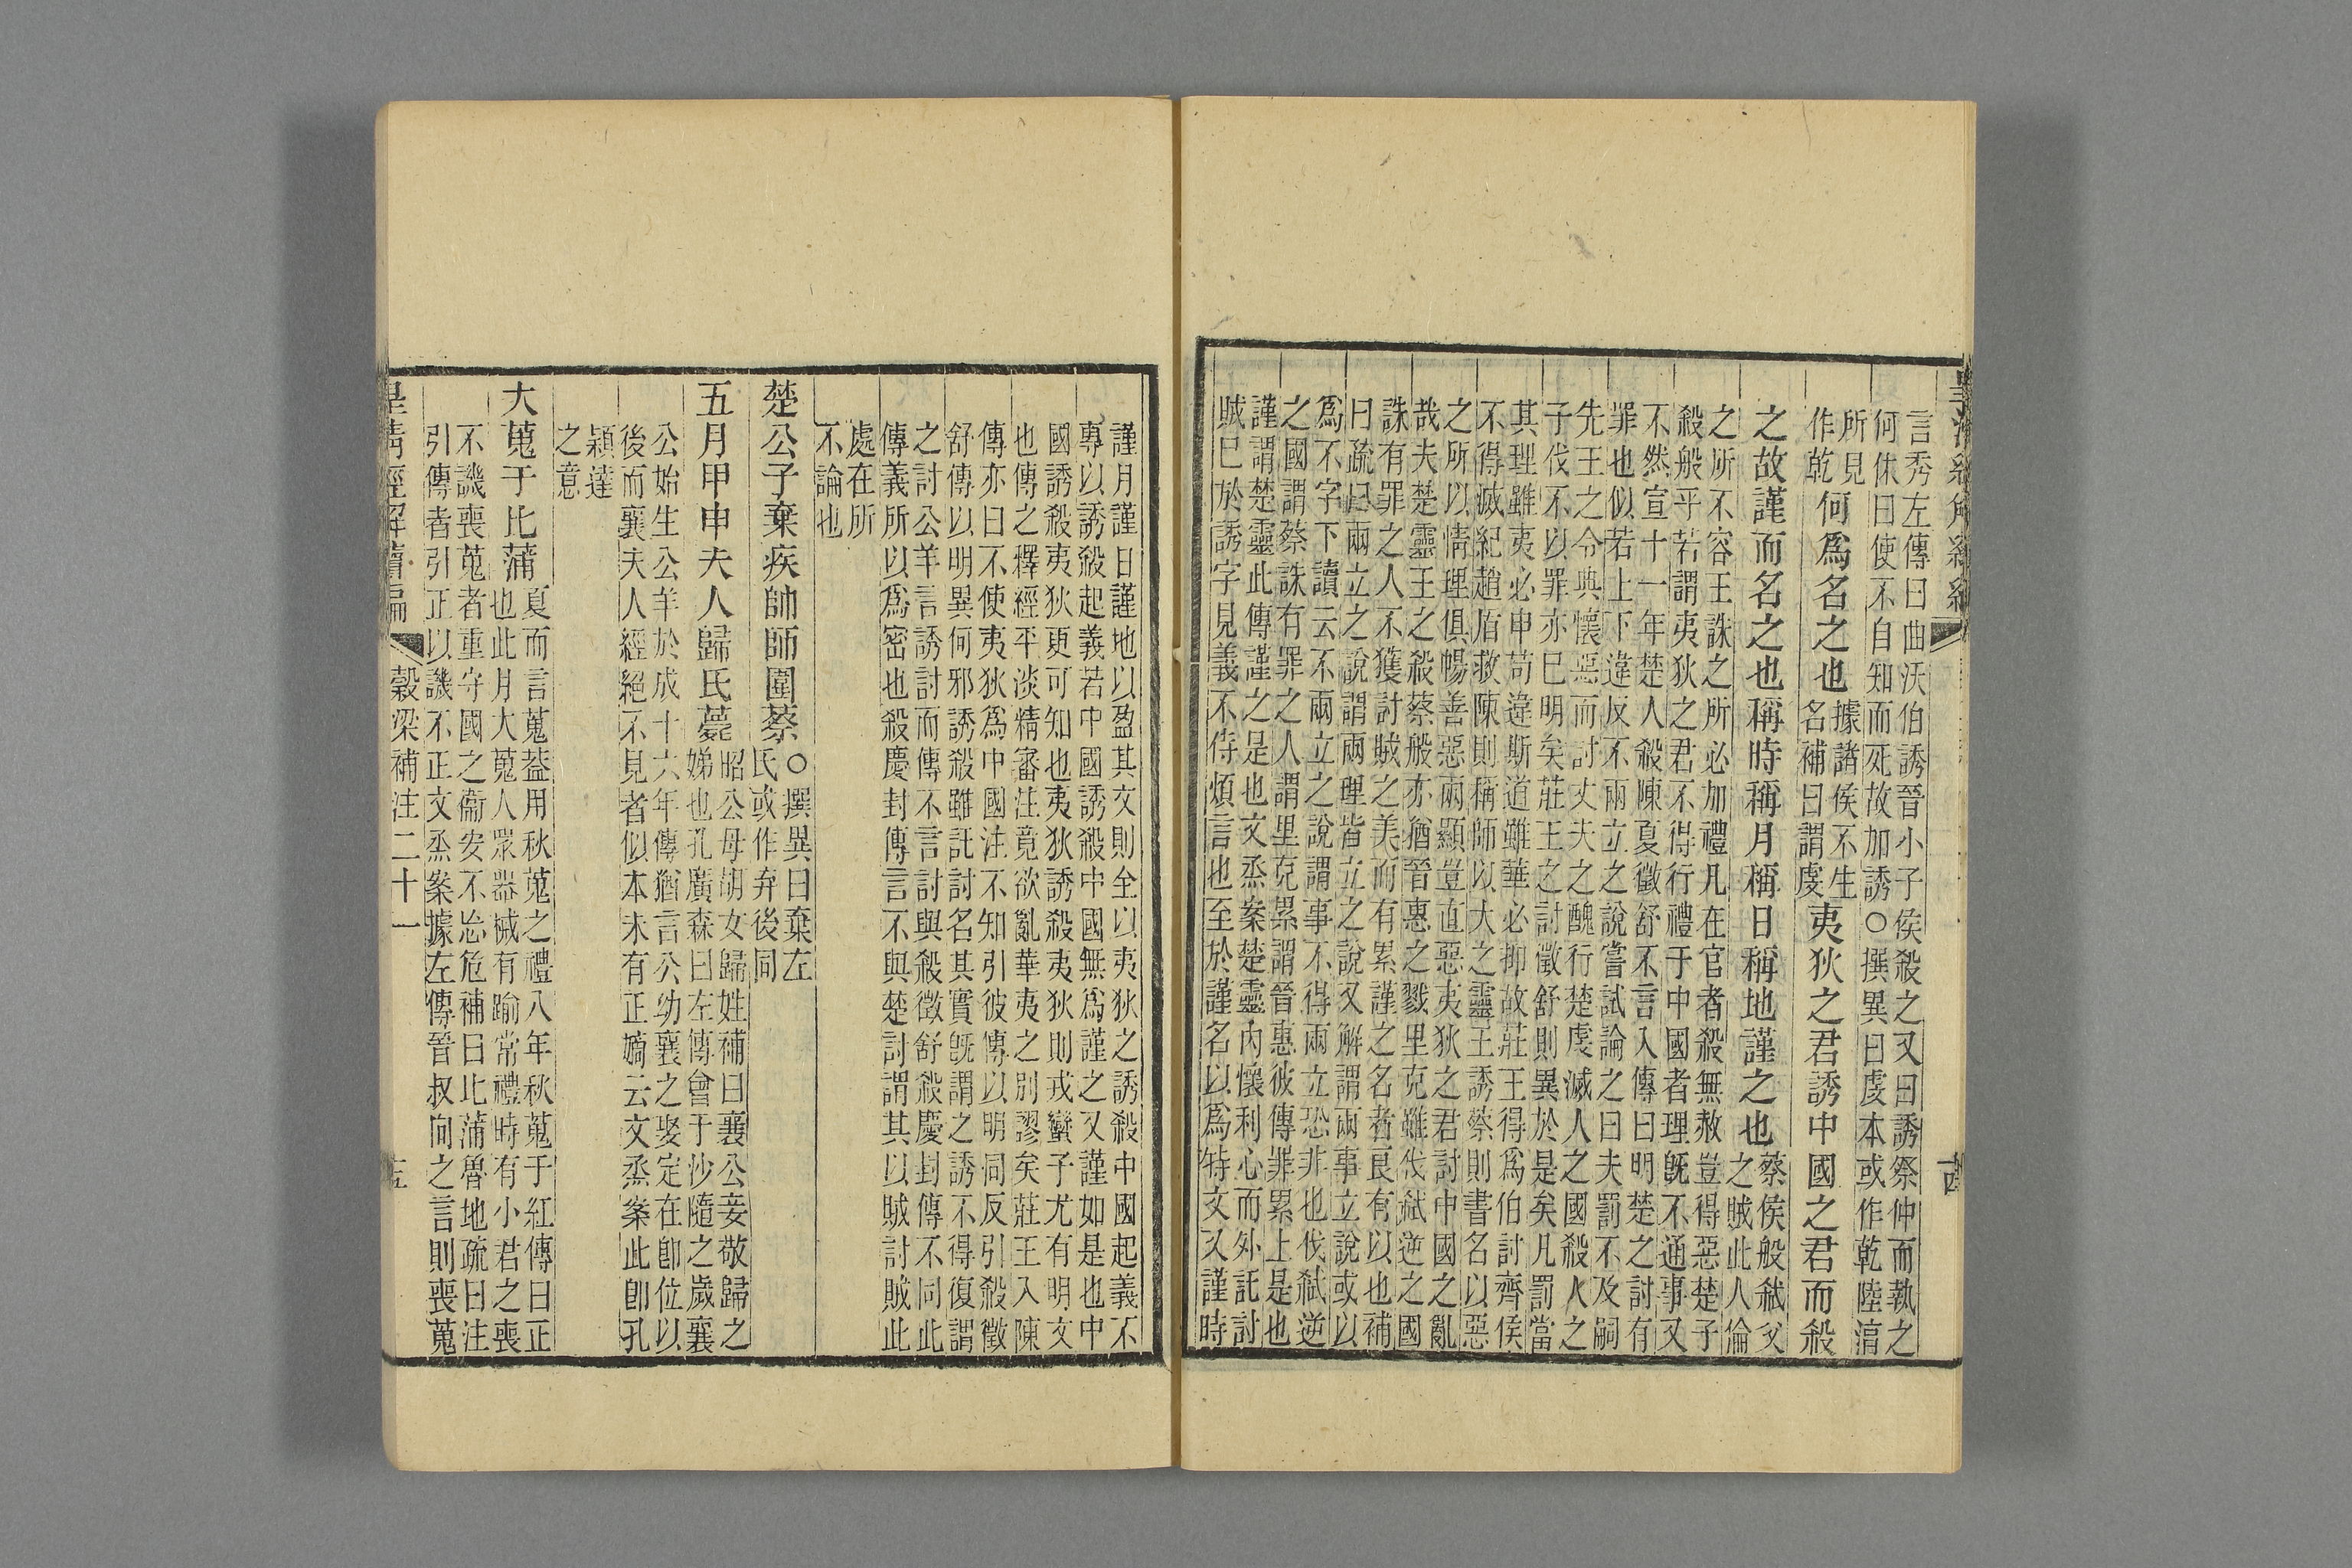 皇清經解續編
十四
言秀左傳曰曲沃伯誘晉小子侯殺之又曰誘祭仲而執之
何休曰使不自知而死故加誘○撰異曰虔本或作乾陸淳
所見
作乾
何爲名之也
據諸侯不生
名補曰謂虔
夷狄之君誘中國之君而殺
之故謹而名之也稱時稱月稱日稱地謹之也
蔡侯般弒父
之賊此人倫
之所不容王誅之所必加禮凡在官者殺無赦豈得惡楚子
殺般乎若謂夷狄之君不得行禮于中國者理旣不通事又
不然宣十一年楚人殺陳夏徵舒不言入傳曰明楚之討有
罪也似若上下違反不兩立之說嘗試論之曰夫罰不及嗣
先王之令典懷惡而討丈夫之醜行楚虔滅人之國殺人之
子伐不以罪亦已明矣莊王之討徵舒則異於是矣凡罰當
其理雖夷必申苟違斯道雖華必抑故莊王得爲伯討齊侯
不得滅紀趙盾救陳則稱師以大之靈王誘蔡則書名以惡
之所以情理俱暢善惡兩顯豈直惡夷狄之君討中國之亂
哉夫楚靈王之殺蔡般亦猶晉惠之戮里克雖伐弒逆之國
誅有罪之人不獲討賊之美而有累謹之名者良有以也補
曰疏曰兩立之說謂兩理皆立之說又解謂兩事立說或以
爲不字下讀云不兩立之說謂事不得兩立恐非也伐弒逆
之國謂蔡誅有罪之人謂里克累謂晉惠彼傳罪累上是也
謹謂楚靈此傳謹之是也文烝案楚靈內懷利心而外託討
賊已於誘字見義不待煩言也至於謹名以爲特文又謹時
謹月謹日謹地以盈其文則全以夷狄之誘殺中國起義不
專以誘殺起義若中國誘殺中國無爲謹之又謹如是也中
國誘殺夷狄更可知也夷狄誘殺夷狄則戎蠻子尤有明文
也傳之釋經平淡精審注竟欲亂華夷之別謬矣莊王入陳
傳亦曰不使夷狄爲中國注不知引彼傳以明同反引殺徵
舒傳以明異何邪誘殺雖託討名其實旣謂之誘不得復謂
之討公羊言誘討而傳不言討與殺徵舒殺慶封傳不同此
傳義所以爲密也殺慶封傳言不與楚討謂其以賊討賊此
處在所
不論也
楚公子棄疾帥師圍蔡
○撰異曰棄左
氏或作弃後同
五月甲申夫人歸氏薨
昭公母胡女歸姓補曰襄公妾敬歸之
娣也孔廣森曰左傳會于沙隨之歲襄
公始生公羊於成十六年傳猶言公幼襄之娶定在卽位以
後而襄夫人經絕不見者似本未有正嫡云文烝案此卽孔
穎達
之意
大蒐于比蒲
夏而言蒐葢用秋蒐之禮八年秋蒐于紅傳曰正
也此月大蒐人眾器械有踰常禮時有小君之喪
不譏喪蒐者重守國之衞安不忘危補曰比蒲魯地疏曰注
引傳者引正以譏不正文烝案據左傳晉叔向之言則喪蒐
皇清經解續編
穀梁補注二十一
十五